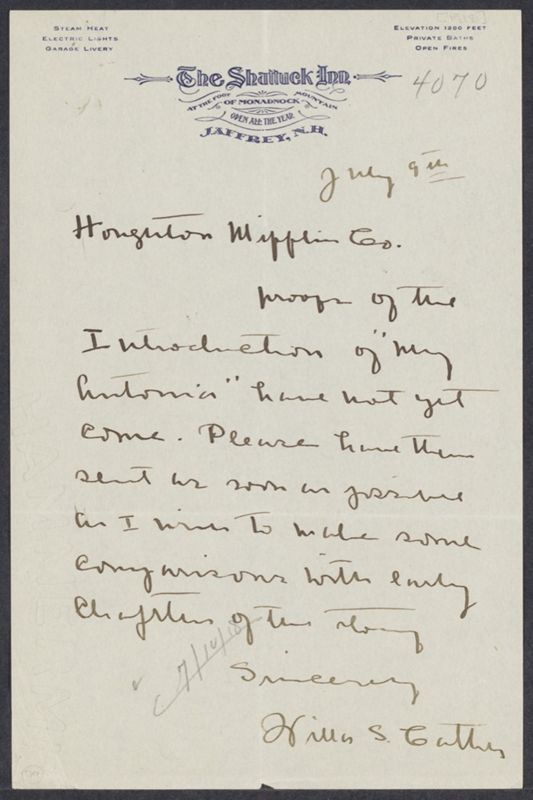 STEAM HEAT
ELECTRIC LIGHTS
GARAGE LIVERY
ELEVATION 1200 FEET
PRIVATE BATHS
OPEN FIRES
The Shattuck Inn
AT THE FOOT OF MONADNOCK MOUNTAIN
OPEN ALL THE YEAR
JAFFREY, N.H.
4070
July 9th
Houghton Mifflin Co.
Proofs of the
Introduction of "My
Antonia" have not yet
come. Please have them
sent as soon as possible
as I wish to make some
comparisons with early
chapters of the story
7/10/18
Sincerely
Willa S. Cather